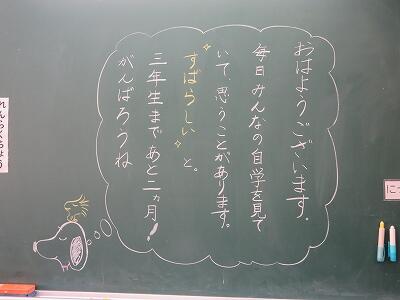 おはようございます。
毎日みんなの自学を見て
いて、思うことがあります。
すばらしい と。
三年生まであと二ヵ月!
がんばろうね
れんらくちょう
に